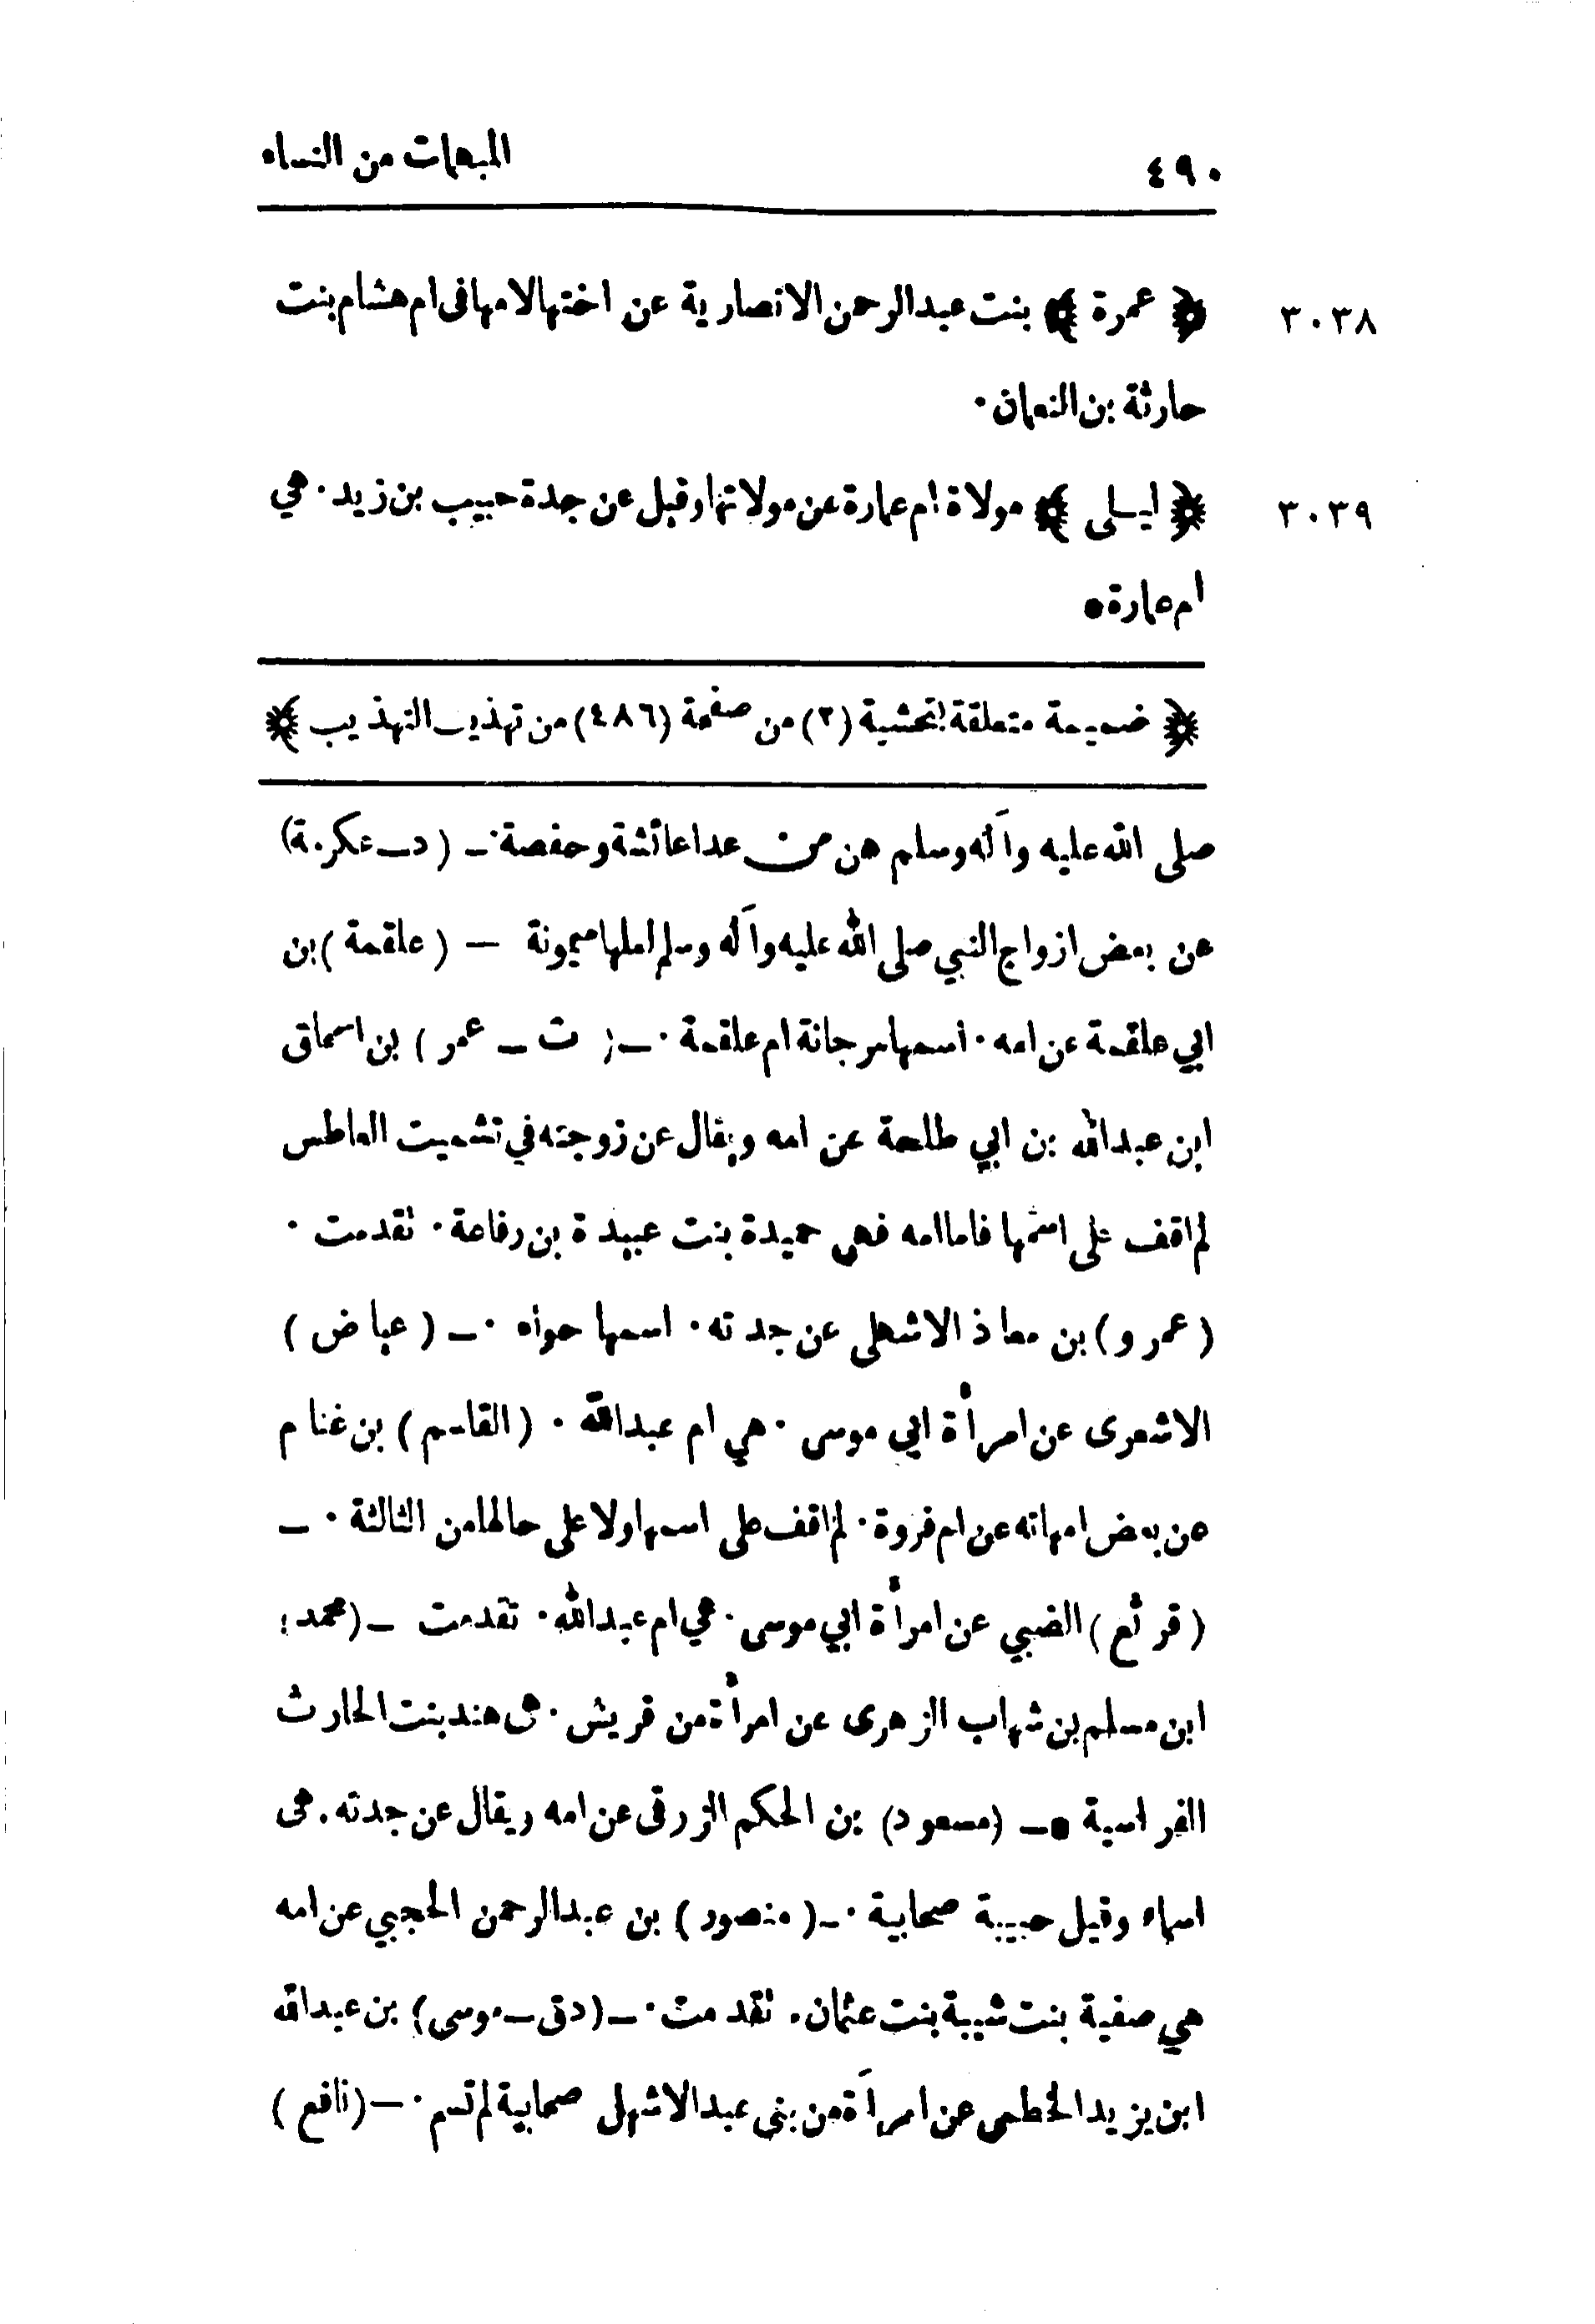 ٤٩٠
المبهمات من النساء
٣٠٣٨ ﴿ عمرة ﴾ بنت عبدالرحمن الانصارية عن اختها لامها في ام هشام بنت
حارثة بن النعمان ·
٣٠٣٩ ﴿ ليلى ﴾ مولاة ام عمارة عن مولاتها وقيل عن جدة حبيب بن زيد · هي
ام عمارة •
﴿ ضميمة متعلقة بتحشية (٢) من صفحة (٤٨٦) من تهذيب التهذيب ﴾
صلى الله عليه وآله وسلم هن من عدا عائشة وحفصة · – ( د – عكرمة )
عن بعض ازواج النبي صلى الله عليه وآله وسلم لعلها ميمونة – ( علقمة ) بن
ابي علقمة عن امه · اسمها مرجانة ام علقمة · – ( ت – عمر ) بن اسحاق
ابن عبدالله بن ابي طلحة عن امه ويقال عن زوجته في تشميت العاطس
لم اقف على اسمها فاما امه فهي حميدة بنت عبيدة بن رفاعة · تقدمت ·
( عمرو ) بن معاذ الاشهلى عن جدته · اسمها حواء · – ( عياض )
الاشعرى عن امرأة ابي موسى · هي ام عبدالله · ( القاسم ) بن غنام
عن بعض امهاته عن ام فروة · لم اقف على اسمها ولا على حالها من الثالثة · –
( قرثع ) الضبي عن امرأة ابي موسى · هي ام عبدالله · تقدمت – ( محمد )
ابن مسلم بن شهاب الزهرى عن امرأة من قريش · هى هند بنت الحارث
الفراسية • – ( مسعود ) بن الحكم الزرقى عن امه ويقال عن جدته . هى
اسماء وقيل حبيبة صحابية · – ( منصور ) بن عبدالرحمن الحجبي عن امه
هي صفية بنت شيبة بنت عثمان . تقدمت · – ( دق – موسى ) بن عبدالله
ابن يزيد الخطمى عن امرأة من بنى عبد الاشهل صحابية لم تسم · – ( نافع )